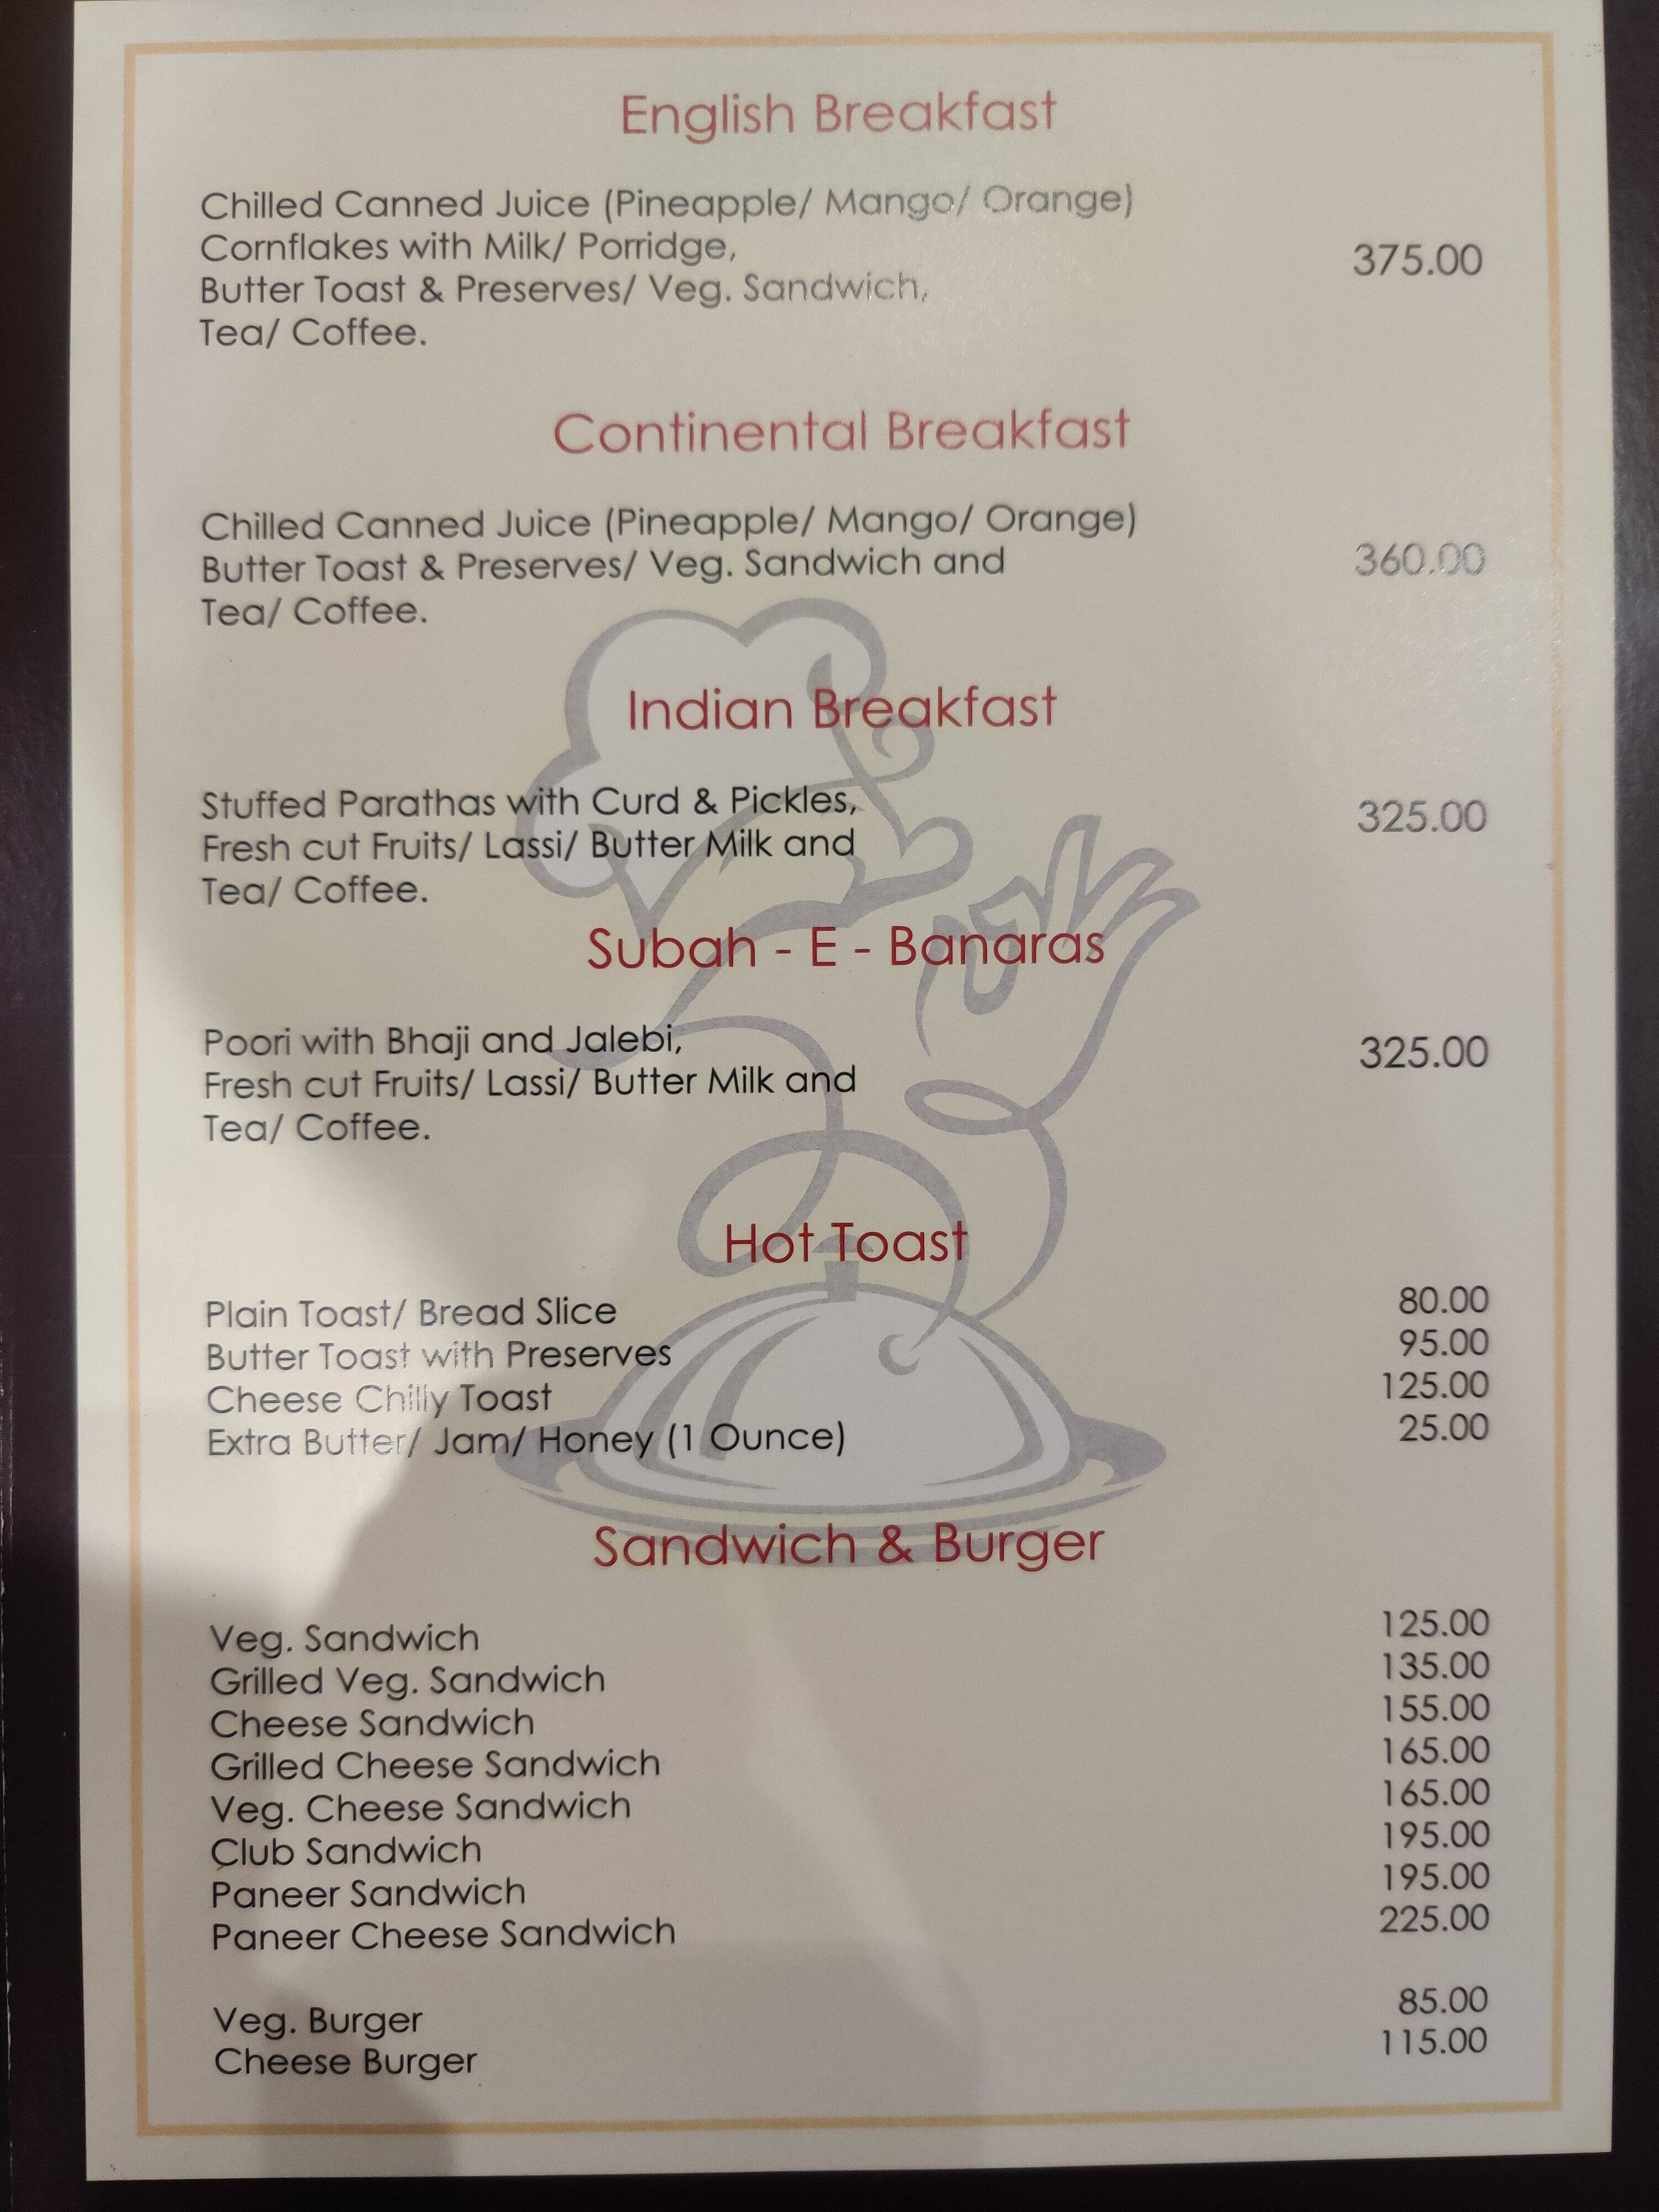 English Breakfast
Chilled Canned Juice (Pineapple/ Mango/ Orange)
Cornflakes with Milk/ Porridge,
375.00
Butter Toast & Preserves/ Veg. Sandwich,
Tea/ Coffee.
Continental Breakfast
Chilled Canned Juice (Pineapple/ Mango/ Orange)
Butter Toast & Preserves/ Veg. Sandwich and
360.00
Tea/ Coffee.
Indian Breakfast
Stuffed Parathas with Curd & Pickles,
325.00
Fresh cut Fruits/ Lassi/ Butter Milk and
Tea/ Coffee.
Subah - E - Banaras
Poori with Bhaji and Jalebi,
325.00
Fresh cut Fruits/ Lassi/ Butter Milk and
Tea/ Coffee.
Hot Toast
Plain Toast/ Bread Slice 80.00
Butter Toast with Preserves 95.00
Cheese Chilly Toast 125.00
Extra Butter/ Jam/ Honey (1 Ounce) 25.00
Sandwich & Burger
Veg. Sandwich 125.00
Grilled Veg. Sandwich 135.00
Cheese Sandwich 155.00
Grilled Cheese Sandwich 165.00
Veg. Cheese Sandwich 165.00
Club Sandwich 195.00
Paneer Sandwich 195.00
Paneer Cheese Sandwich 225.00
Veg. Burger 85.00
Cheese Burger 115.00